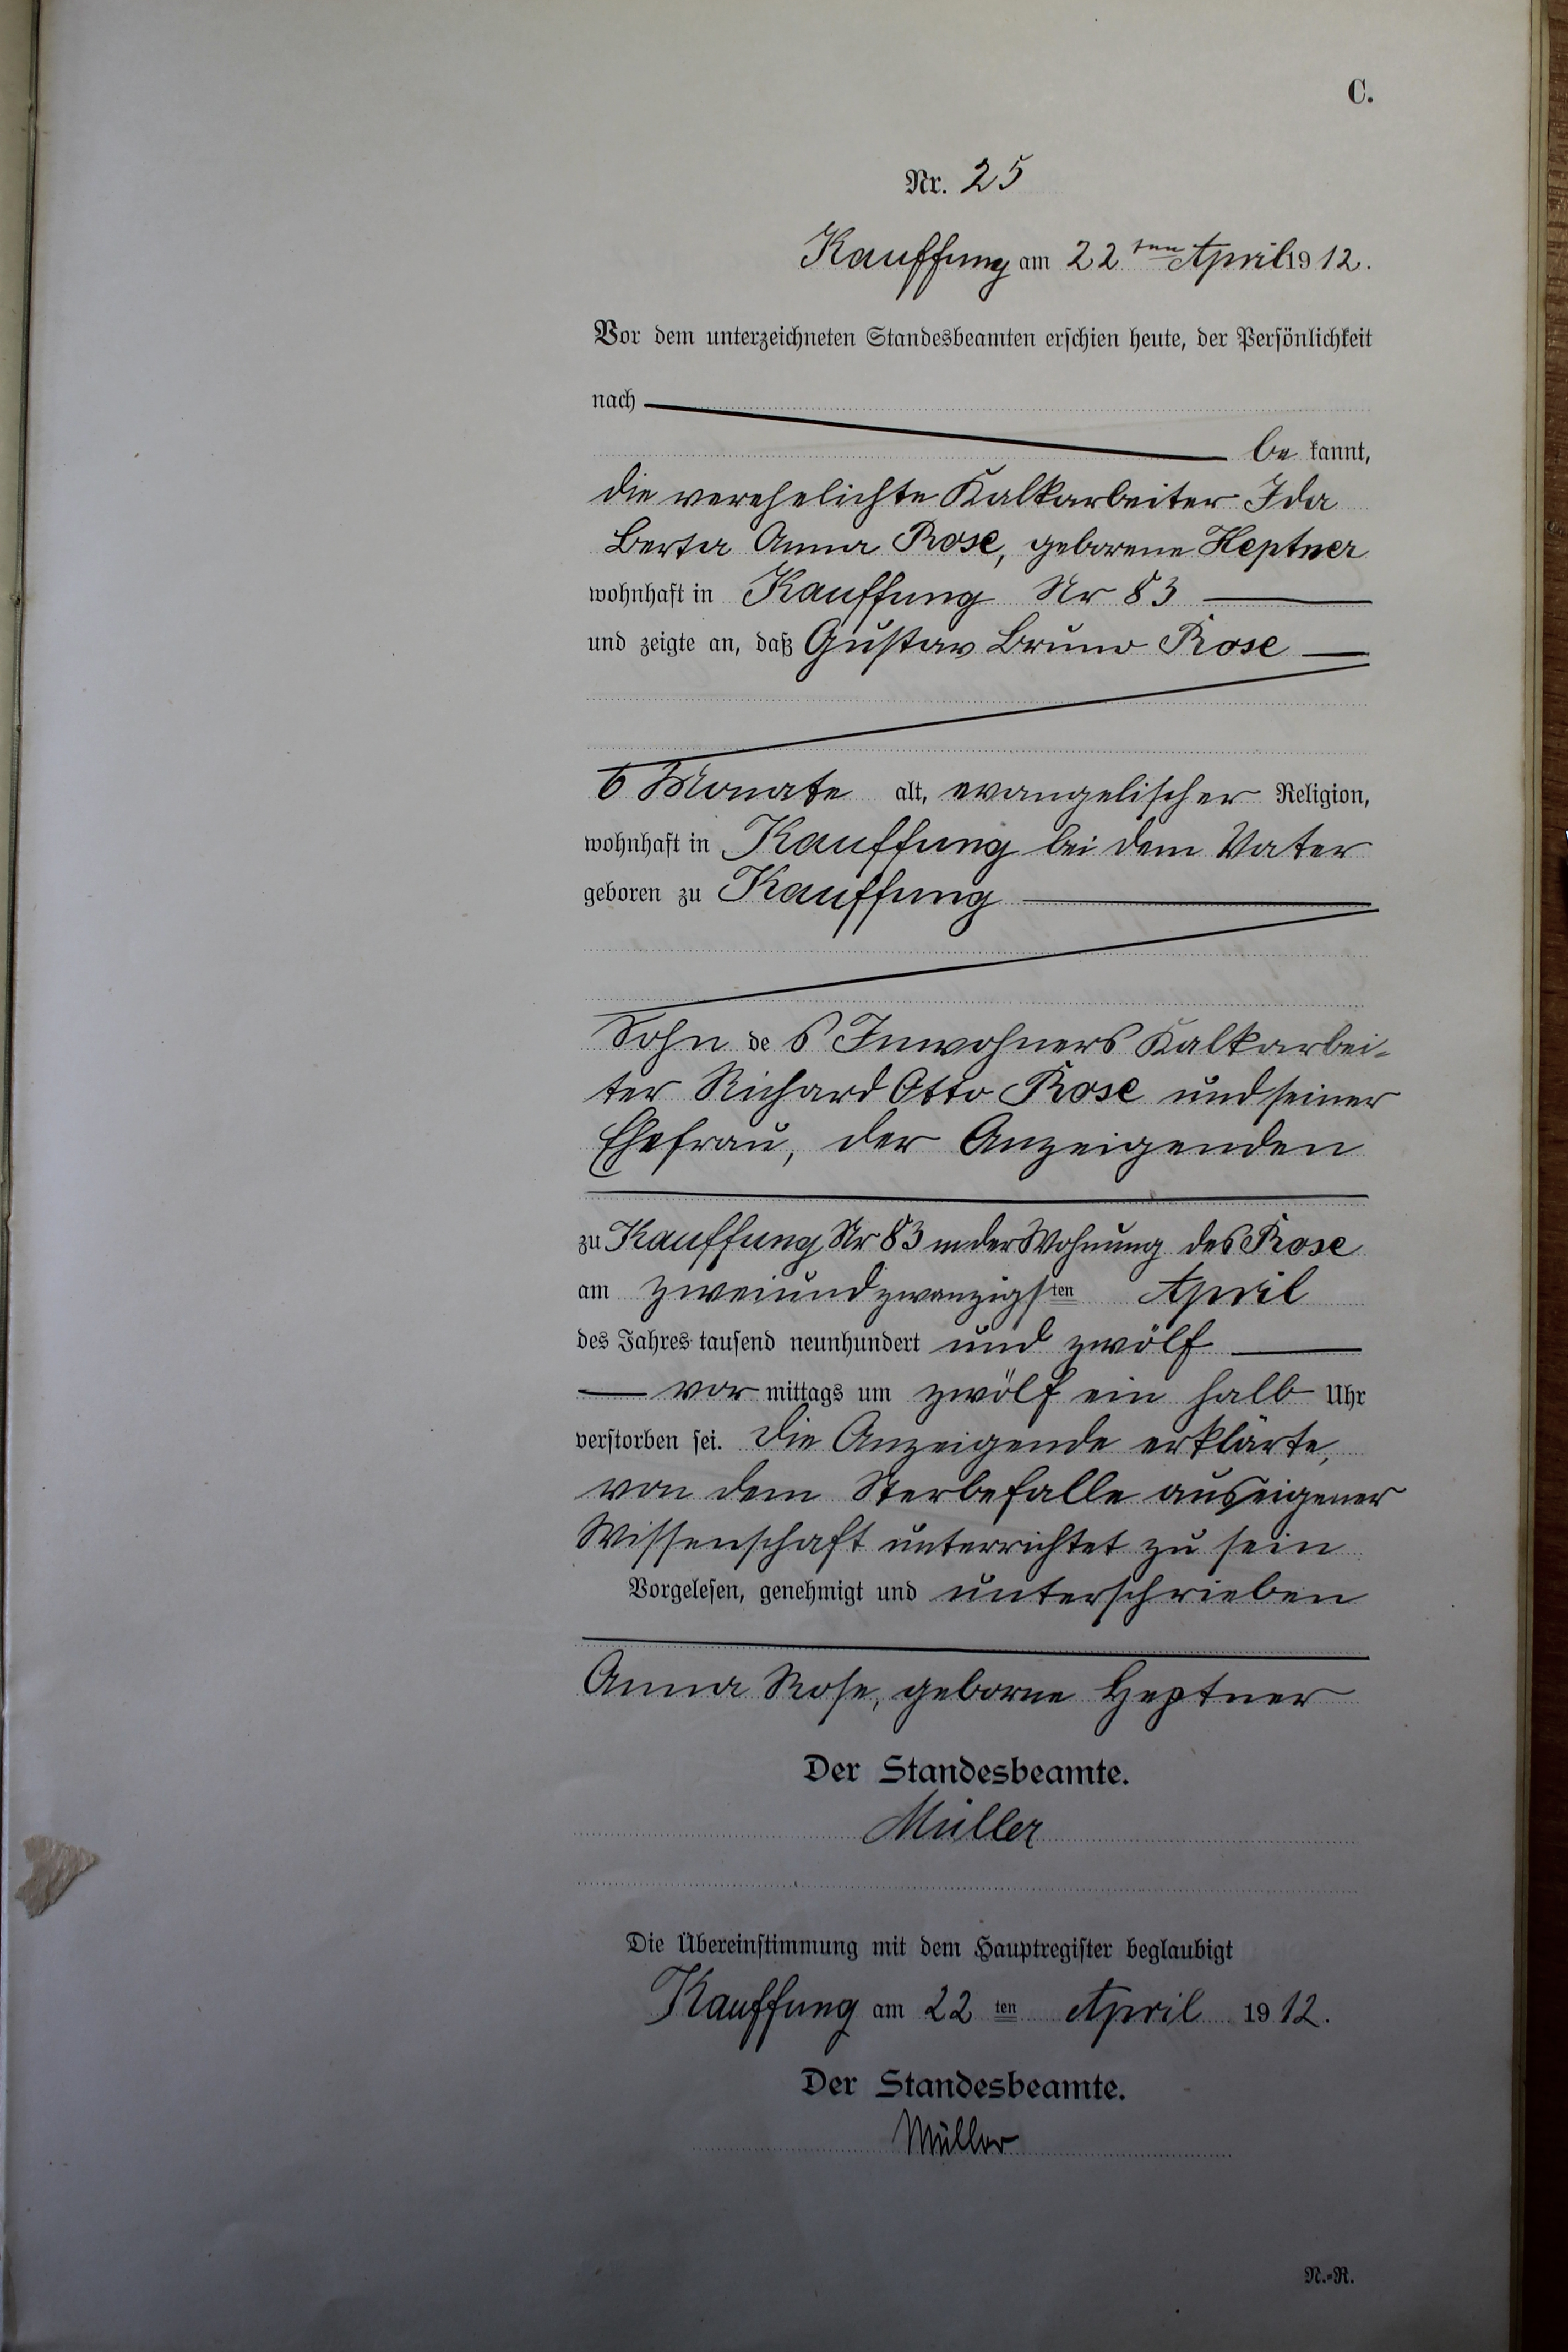 C.
Nr. 25
Kauffung am 22ten April 1912.
Vor dem unterzeichneten Standesbeamten erschien heute, der Persönlichkeit
nach
be kannt,
die verehelichte Kalkarbeiter Ida
Berta Anna Rose, geborene Heptner
wohnhaft in Kauffung Nr 83
und zeigte an, daß Gustav Bruno Rose
6 Monate alt, evangelischer Religion,
wohnhaft in Kauffung bei dem Vater
geboren zu Kauffung
Sohn des Inwohners Kalkarbei-
ter Richard Otto Rose und seiner
Ehefrau, der Anzeigenden
zu Kauffung Nr 83 in der Wohnung des Rose
am zweiundzwanzigsten April
des Jahres tausend neunhundert und zwölf
vor mittags um zwölf ein halb Uhr
verstorben sei. Die Anzeigende erklärte,
von dem Sterbefalle aus eigener
Wissenschaft unterrichtet zu sein
Vorgelesen, genehmigt und unterschrieben
Anna Rose, geborne Heptner
Der Standesbeamte.
Müller
Die Übereinstimmung mit dem Hauptregister beglaubigt
Kauffung am 22 ten April 1912.
Der Standesbeamte.
Müller
N.-R.